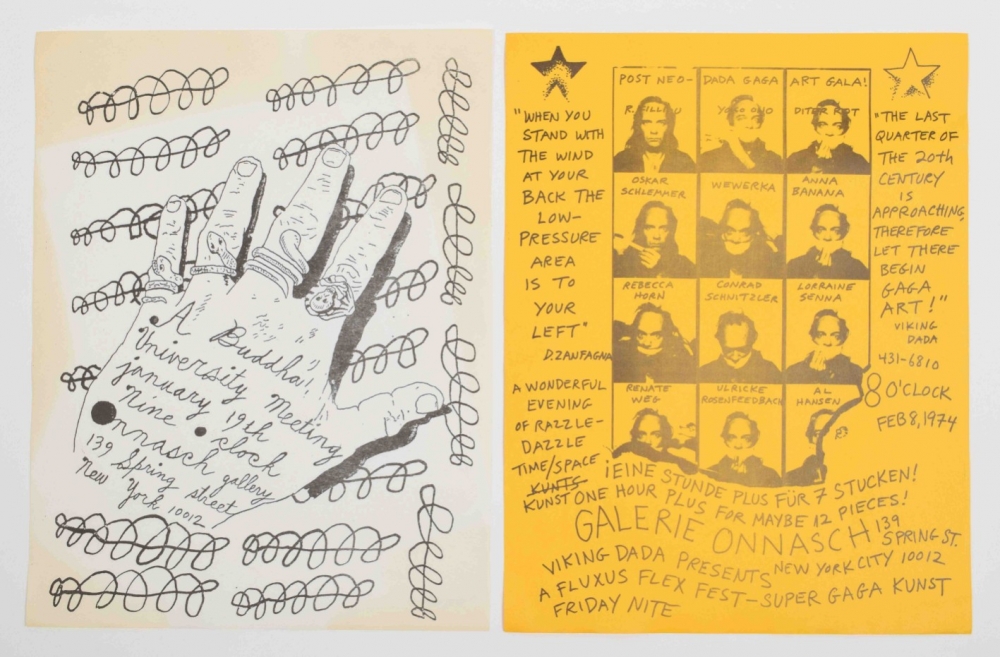 A
Buddha
University Meeting
january 19th
Nine o'clock
Onnasch gallery
139 Spring street
New York 10012
POST NEO-
DADA GAGA
ART GALA!
R. FILLIOU
YOKO ONO
DITER ROT
OSKAR
SCHLEMMER
WEWERKA
ANNA
BANANA
REBECCA
HORN
CONRAD
SCHNITZLER
LORRAINE
SENNA
RENATE
WEG
ULRICKE
ROSENFEEDBACH
AL
HANSEN
"WHEN YOU
STAND WITH
THE WIND
AT YOUR
BACK THE
LOW-
PRESSURE
AREA
IS TO
YOUR
LEFT"
D. ZANFAGNA
A WONDERFUL
EVENING
OF RAZZLE-
DAZZLE
TIME/SPACE
KUNTS
KUNST
"THE LAST
QUARTER OF
THE 20th
CENTURY
IS
APPROACHING,
THEREFORE
LET THERE
BEGIN
GAGA
ART!"
VIKING
DADA
431-6810
8 O'CLOCK
FEB 8, 1974
¡EINE STUNDE PLUS FÜR 7 STUCKEN!
ONE HOUR PLUS FOR MAYBE 12 PIECES!
GALERIE ONNASCH 139
SPRING ST.
NEW YORK CITY 10012
VIKING DADA PRESENTS
A FLUXUS FLEX FEST-SUPER GAGA KUNST
FRIDAY NITE